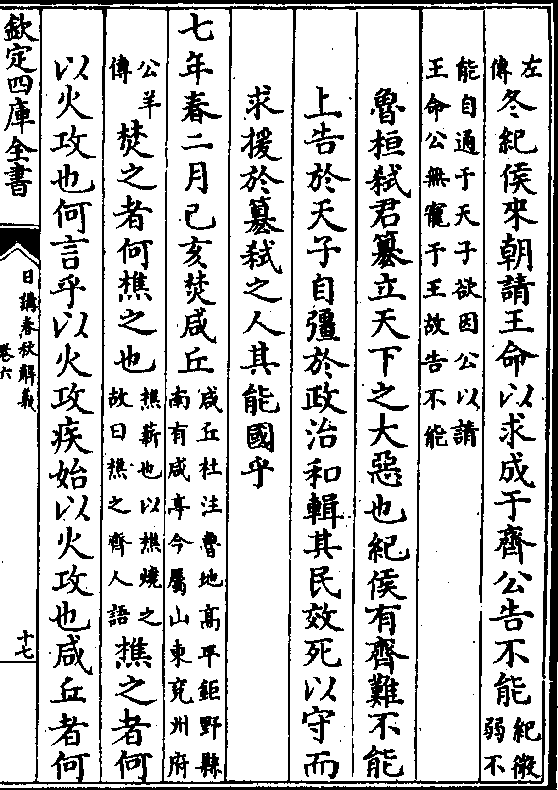 左傳冬紀侯來朝請王命以求成于齊公告不能紀微弱不
能自通于天子欲因公以請
王命公無寵于王故告不能
魯桓弒君簒立天下之大惡也紀侯有齊難不能
上告於天子自彊於政治和輯其民效死以守而
求援於簒弒之人其能國乎
七年春二月己亥焚咸丘咸丘杜注魯地高平鉅野縣南有咸亭今屬山東兗州府
公羊傳焚之者何樵之也樵薪也以樵燒之故曰樵之齊人語樵之者何
以火攻也何言乎以火攻疾始以火攻也咸丘者何
欽定四庫全書
日講春秋解義
卷六
十七